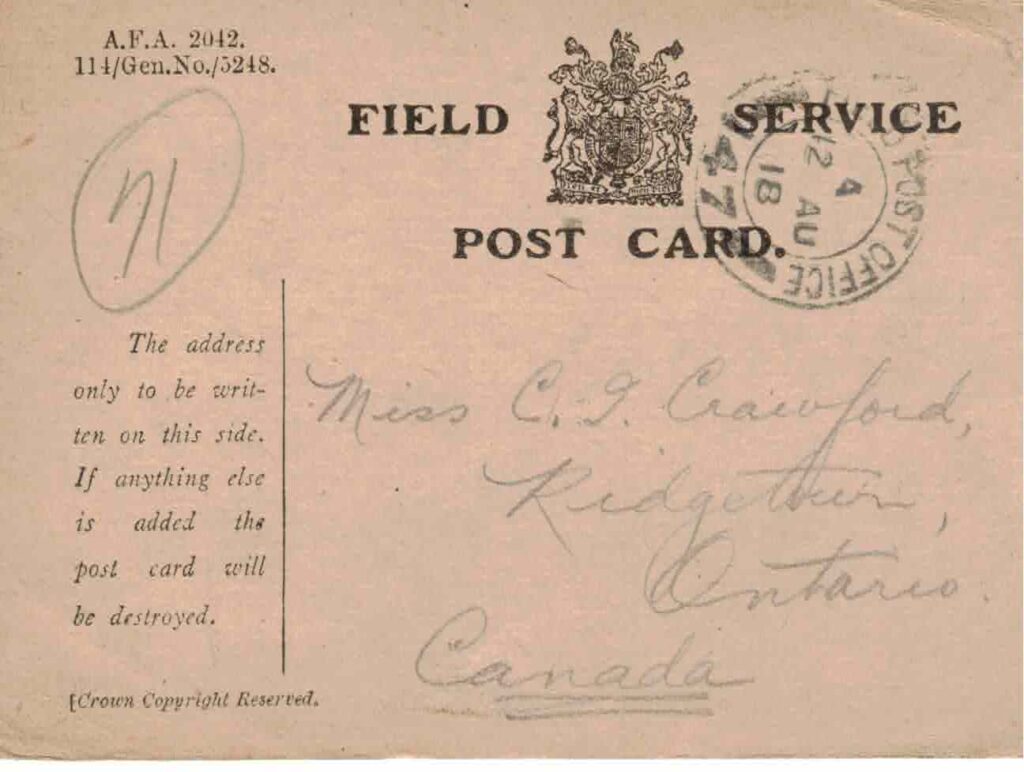 A.F.A. 2042.
114/Gen.No./5248.
FIELD SERVICE
POST CARD.
POST OFFICE
47
4
12 AU
18
71
The address
only to be writ-
ten on this side.
If anything else
is added the
post card will
be destroyed.
[Crown Copyright Reserved.
Miss C. I. Crawford,
Ridgetown,
Ontario.
Canada